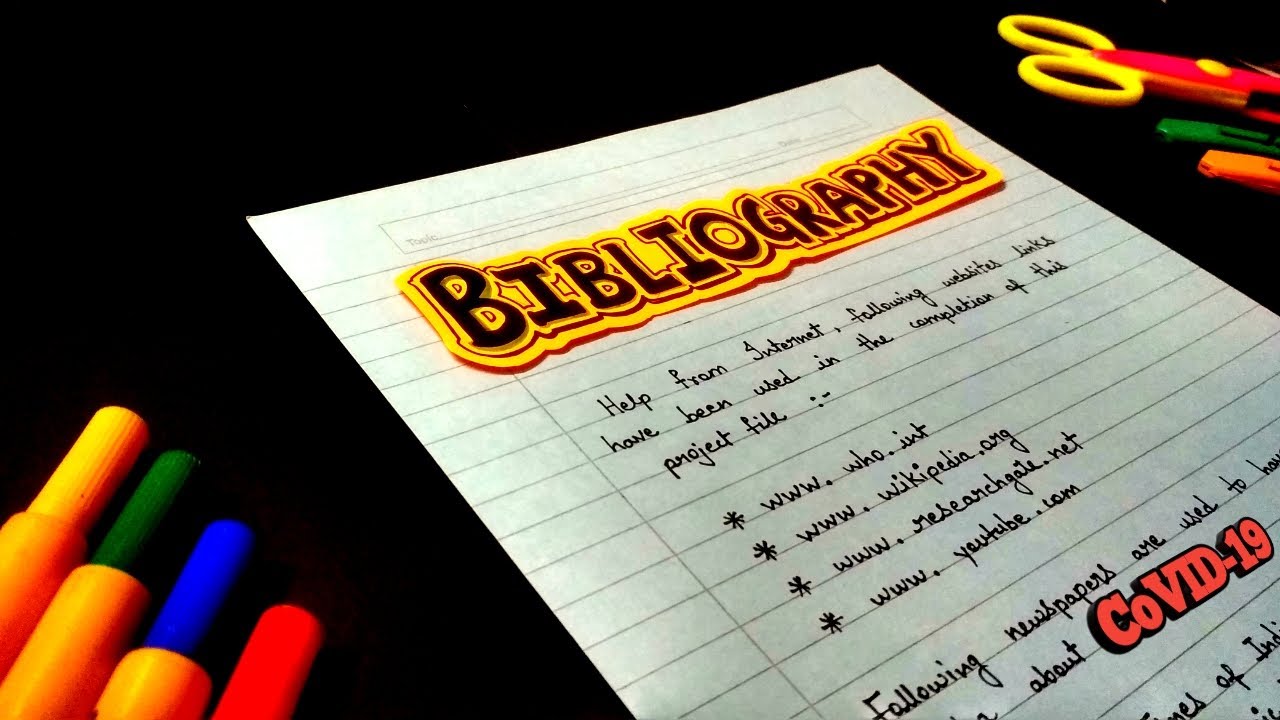 Topic
Date
BIBLIOGRAPHY
Help from Internet, following websites links
have been used in the completion of this
project file :-
* www.who.int
* www.wikipedia.org
* www.researchgate.net
* www.youtube.com
Following newspapers are used to have
about COVID-19
Times of Indi